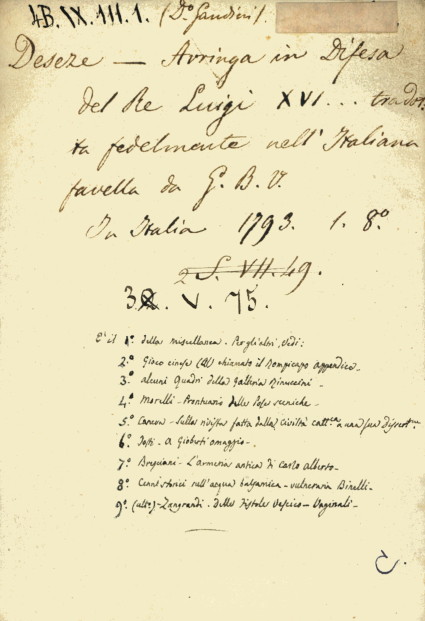 4B. IX. III. 1. (Do Gandini).
Deseze — Arringa in Difesa
del Re Luigi XVI... tradot.
ta fedelmente nell'Italiana
favella da G. B. V.
In Italia 1793. 1. 8.o
2 S. VII. 49.
3. V. 75.
È il 1o della miscellanea. Per gli altri, vedi:
2.o Gioco cinese (Al) chiamato il Rompicapo appendice.
3.o Alcuni Quadri della Galleria Rinuccini -
4.o Morelli - Prontuario delle Pose sceniche -
5.o Canova - Sulla rivista fatta dalla Civiltà catt.ca a una sua dissert.ne
6.o - A Gioberti omaggio -.
7.o Bresciani - L'armeria antica di Carlo Alberto -
8.o Cenni storici sull'acqua balsamica - vulneraria Binelli -
9.o (ulto) - Zangrandi. Delle Fistole Vescico - Vaginali -
C.